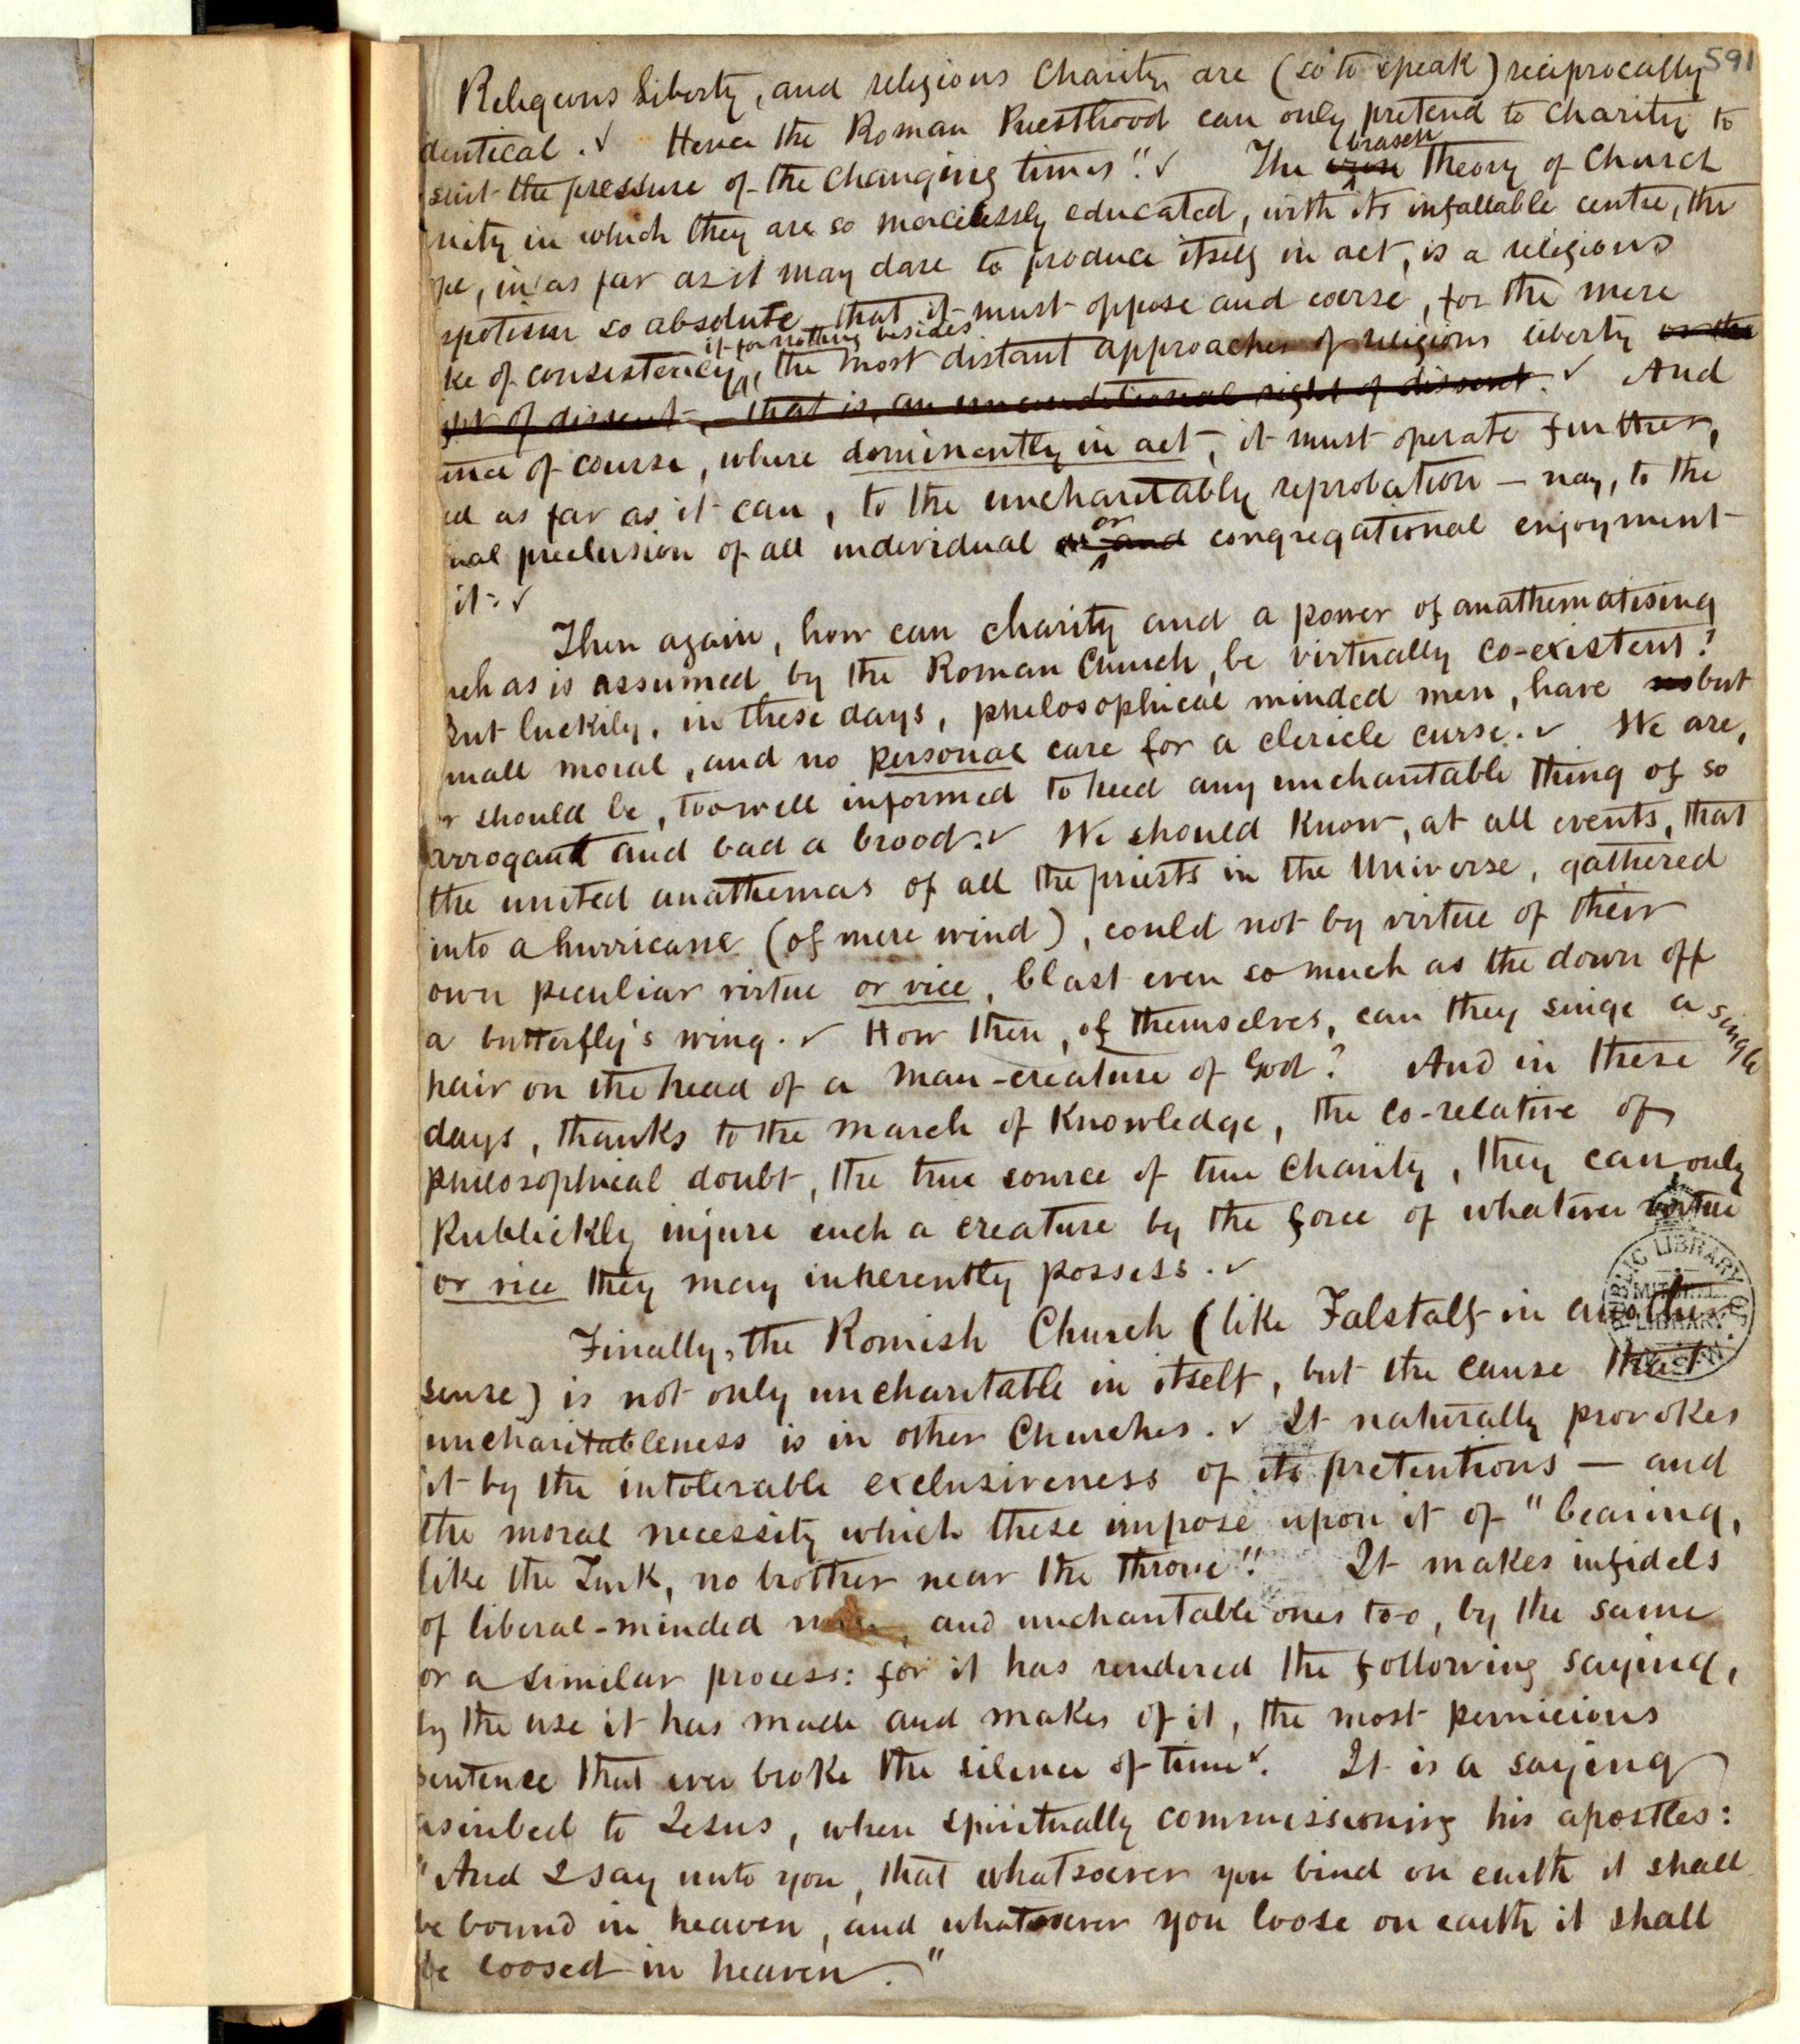 591
Religeous Liberty, and religious Charity, are (so to speak) reciprocally
dentical. ✓ Hence the Roman Priesthood can only pretend to Charity to
suit the pressure of the changing times". ✓ The brasen theory of Church
nity in which they are so mercilessly educated, with its infallable centre, the
pe, in as far as it may dare to produce itself in act, is a religious
spotism so absolute, that it must oppose and coerse, for the mere
ke of consistency, if for nothing besides, the most distant approaches of religious liberty or the
ght of dissent, — that is, an unconditional right of dissent. ✓ And
ence of course, where dominently in act, it must operate further,
nd as far as it can, to the uncharitably reprobation — nay, to the
nal preclusion of all individual or and or congregational enjoyment
it. ✓
Then again, how can charity and a power of anathematising
uch as is assumed by the Roman Church, be virtually co-existent?
But luckily, in these days, philosophical minded men, have no but
mall moral, and no personal care for a clericle curse. ✓ We are,
or should be, too well informed to heed any uncharitable thing of so
arrogant and bad a brood. ✓ We should know, at all events, that
the united anathemas of all the priests in the Universe, gathered
into a hurricane (of mere wind), could not by virtue of their
own peculiar virtue or vice, blast even so much as the down off
a butterfly's wing. ✓ How then, of themselves, can they singe a single
hair on the head of a man-creature of God? And in these
days, thanks to the march of Knowledge, the co-relative of
philosophical doubt, the true source of true Charity, they can only
Publickly injure such a creature by the force of whatever virtue
or vice they may inherently possess. ✓
Finally, the Romish Church (like Falstalf in another
sense) is not only uncharitable in itself, but the cause that
uncharitableness is in other Churches. ✓ It naturally provokes
it by the intolerable exclusiveness of its pretentions — and
the moral necessity which these impose upon it of "bearing,
like the Turk, no brother near the throne". It makes infidels
of liberal-minded men, and uncharitable ones too, by the same
or a similar process: for it has rendered the following saying,
by the use it has made and makes of it, the most pernicious
sentence that ever broke the silence of time ✓. It is a saying
ascribed to Jesus, when spiritually commissioning his apostles:
"And I say unto you, that whatsoever you bind on earth it shall
be bound in heaven, and whatsoever you loose on earth it shall
be loosed in heaven."
PUBLIC LIBRARY OF N.S.W.
MITCHELL LIBRARY